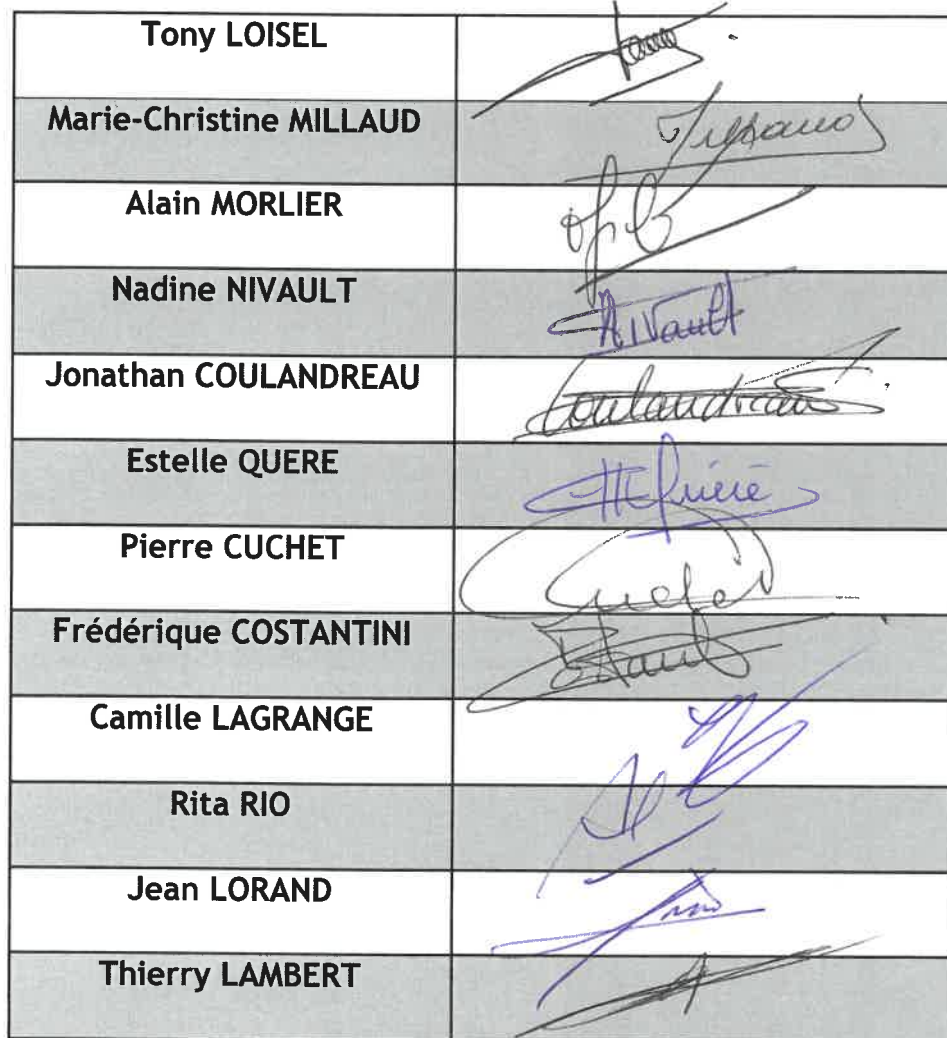 Tony LOISEL
Marie-Christine MILLAUD
Alain MORLIER
Nadine NIVAULT
Nivault
Jonathan COULANDREAU
Coulandreau
Estelle QUERE
Pierre CUCHET
Cuchet
Frédérique COSTANTINI
Camille LAGRANGE
Rita RIO
Jean LORAND
Thierry LAMBERT